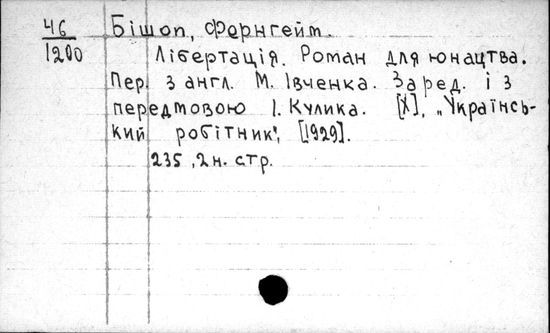 46 Бішоп, Фернгейм.
1200 Лібертація. Роман для юнацтва.
Пер. з англ. М. Івченка. За ред. і з
передмовою І. Кулика. [Х], „Українсь-
кий робітник", [1929].
235, 2 н. стр.